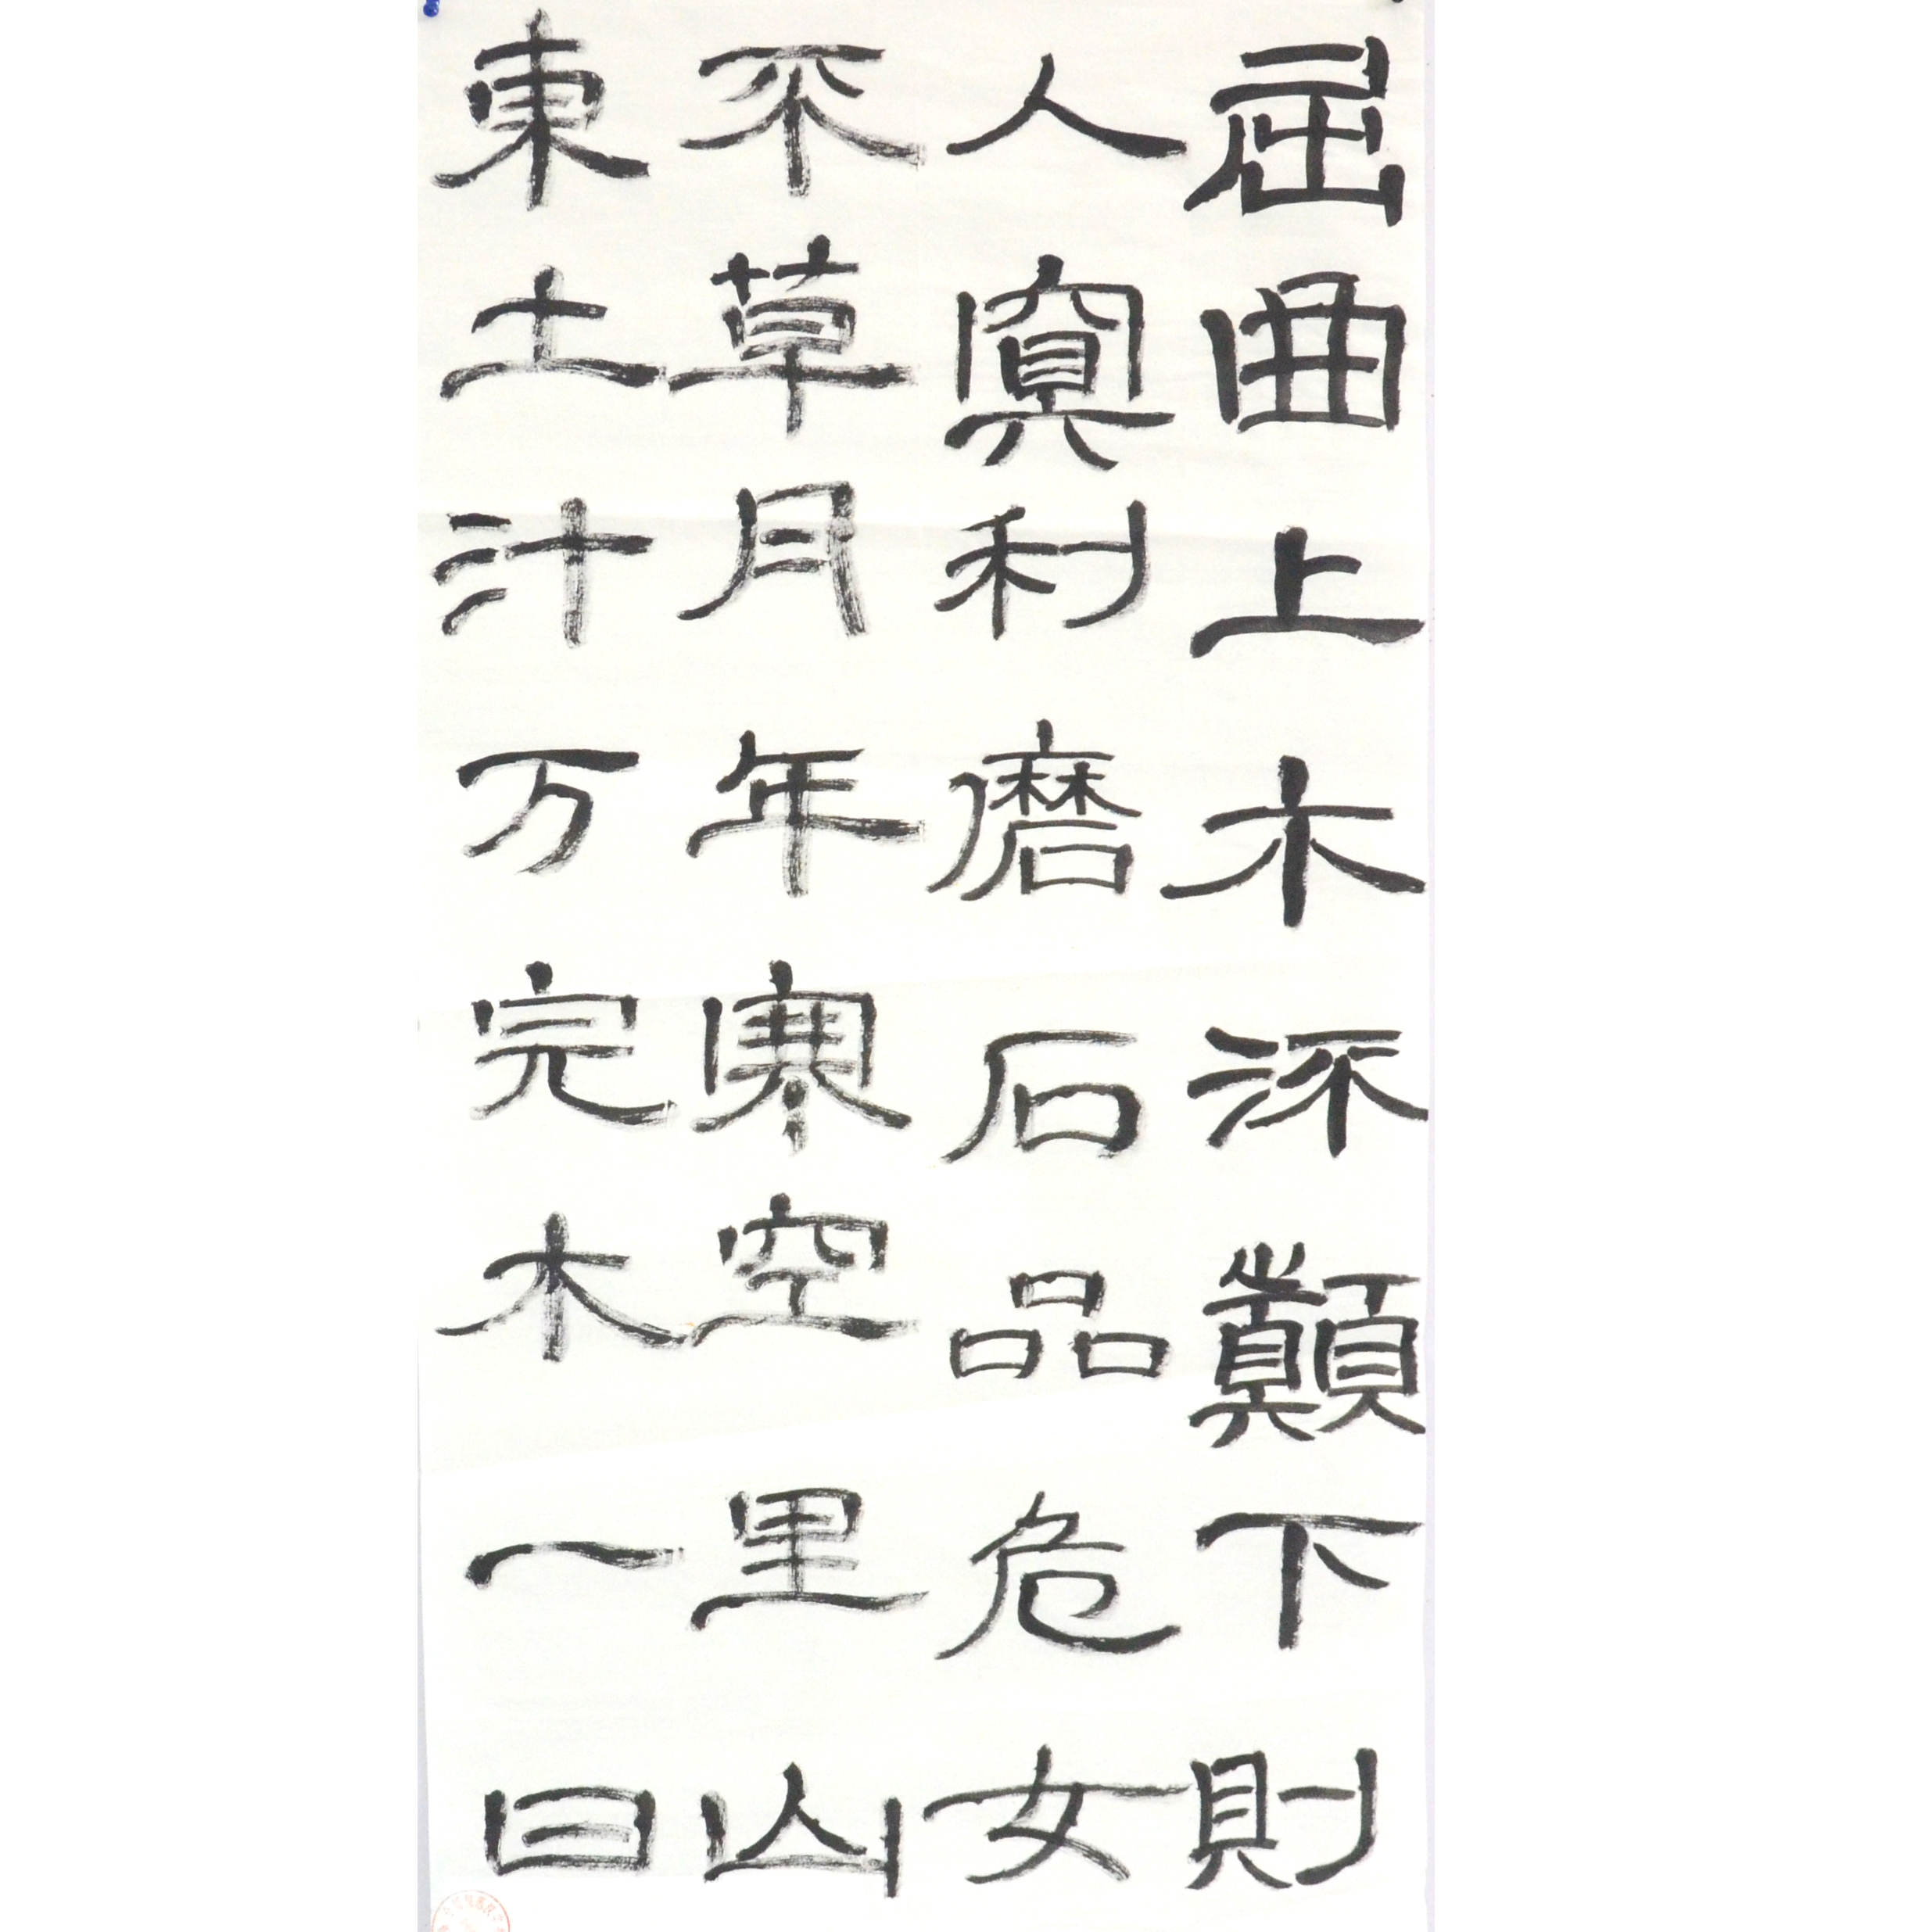 屈曲上木涿顛下則
人寞利磨石品危女
不草月年寒空里山
東土汁万完木一曰